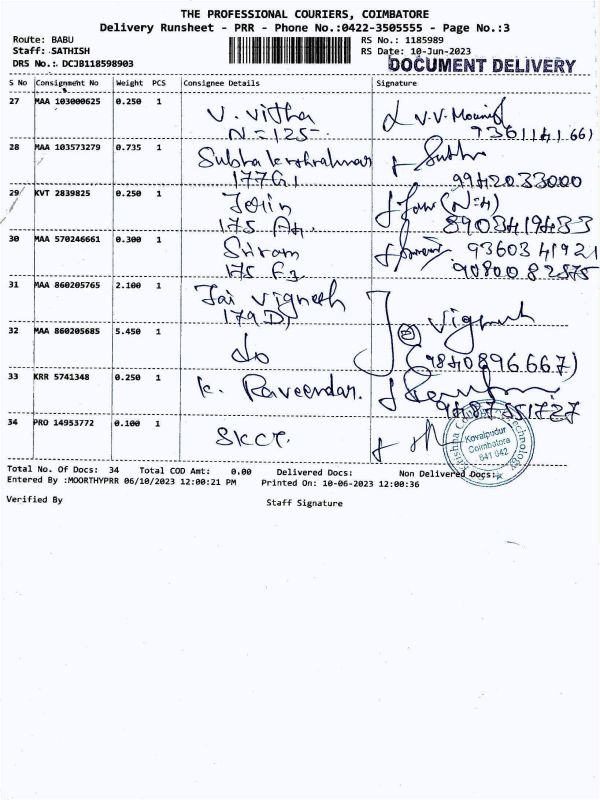 THE PROFESSIONAL COURIERS, COIMBATORE
Delivery Runsheet - PRR - Phone No.:0422-3505555 - Page No.:3
Route: BABU
RS No.: 1185989
Staff: SATHISH
RS Date: 10-Jun-2023
DRS No.: DCJB118598903
DOCUMENT DELIVERY
S No Consignment No Weight PCS Consignee Details Signature
27 MAA 103000625 0.250 1 V. Vitha V.V. 
N=125- 9361141661
28 MAA 103573279 0.735 1 Subha
177G1 9942033000
29 KVT 2839825 0.250 1 Jolin (N=4)
175 A4. 8903419433
30 MAA 570246661 0.300 1 Sriram 93603 41921
175 F3 90800 82575
31 MAA 860205765 2.100 1 Jai Vignesh
179D1 Vignesh
32 MAA 860205685 5.450 1 do
(9840896667)
33 KRR 5741348 0.250 1 K. Raveendar.
9487551727
34 PRO 14953772 0.100 1 SKCT.
Krishna College Technology
Kovaipudur
Coimbatore
641 042
Total No. Of Docs: 34 Total COD Amt: 0.00 Delivered Docs: Non Delivered Docs:
Entered By :MOORTHYPRR 06/10/2023 12:00:21 PM Printed On: 10-06-2023 12:00:36
Verified By Staff Signature